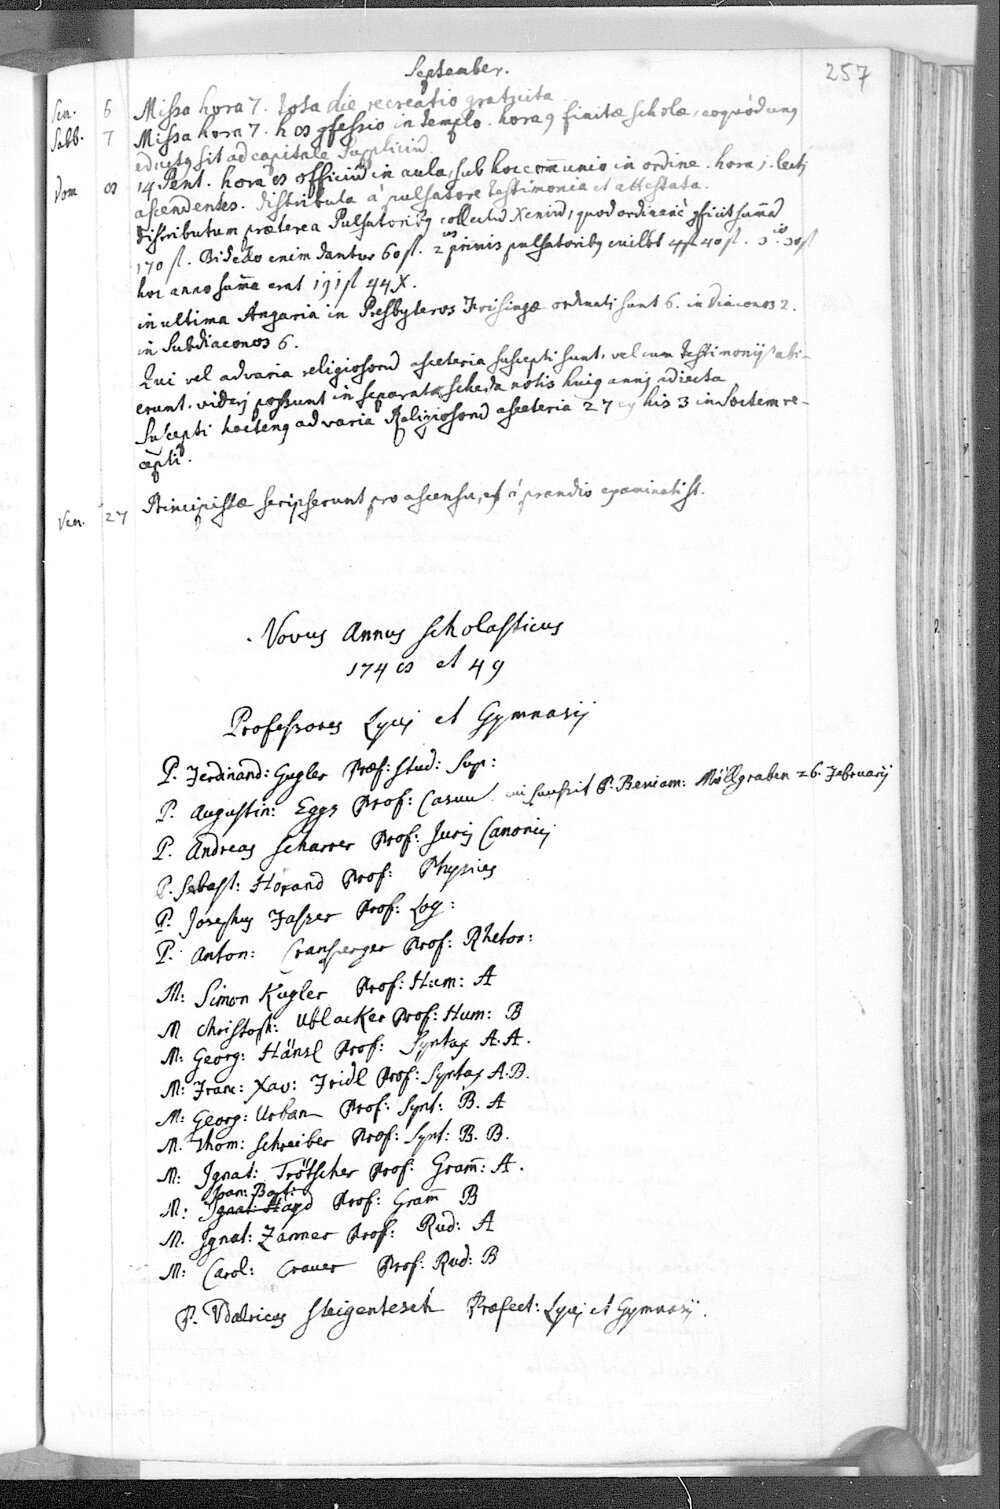 257
September.
Ven. 6 Missa hora 7. tota die recreatio gratuita
Sabb. 7 Missa hora 7. h 8 Confessio in templo. hora 9 finitæ scholæ, eo quòd unus
eductus sit ad capitale Suppliciũ.
Dom 8 14 Pent. hora 8 officiũ in aula, sub hoc com̃unio in ordine. hora 1. lecti
ascendentes. distributa à pulsatore testimonia et attestata.
distributum præterea Pulsatoribus collectũ Xeniũ, quod ordinariè conficit sum̃ã
170 fl. Bidello enim dantur 60 fl. 2bus primis pulsatoribus cuilibet 40 fl. 3io 30 fl
hoc anno sum̃a erat 191 fl 44 X.
in ultima Angaria in Presbyteros Frisingæ ordinati sunt 6. in Diaconos 2.
in Subdiaconos 6.
Qui vel ad varia religiosorũ asceteria suscepti sunt, vel cum testimonijs abi-
erunt, videri possunt in separata scheda notis huius anni adiecta
Suscepti hactenus ad varia Religiosorũ asceteria 27 ex his 3 in Soctem re-
cepti.
Ven. 27 Principistæ scripserunt pro ascensu, et à prandio examinati st.
Novus Annus scholasticus
1748 et 49
Professores Lycej et Gymnasij
P. Ferdinand: Gugler Præf: stud: Sup:
P. Augustin: Eggs Prof: Casuũ. cui successit P. Beniam: Möllgraben 26. Februarij
P. Andreas Scharrer Prof: Juris Canonicj
P. Sebast: Hörand Prof: Physices
P. Josephus Fasser Prof: Log:
P. Anton: Cransperger Prof: Rhetor:
M: Simon Kugler Prof: Hum: A
M Christoph: Ublacker Prof: Hum: B
M: Georg: Hänsl Prof: Syntax A. A.
M: Franc: Xav: Fridl Prof: Syntax A. B.
M: Georg: Urban Prof: Synt: B. A
M. Thom: Schreiber Prof: Synt: B. B.
M: Ignat: Trötscher Prof: Gram̃: A.
Joan: Bapt:
M: Ignat: Hayd Prof: Gram̃ B
M. Ignat: Zanner Prof: Rud: A
M: Carol: Craver Prof: Rud: B
P. Udalricus Steigentesch Præfect: Lycej et Gymnasij.